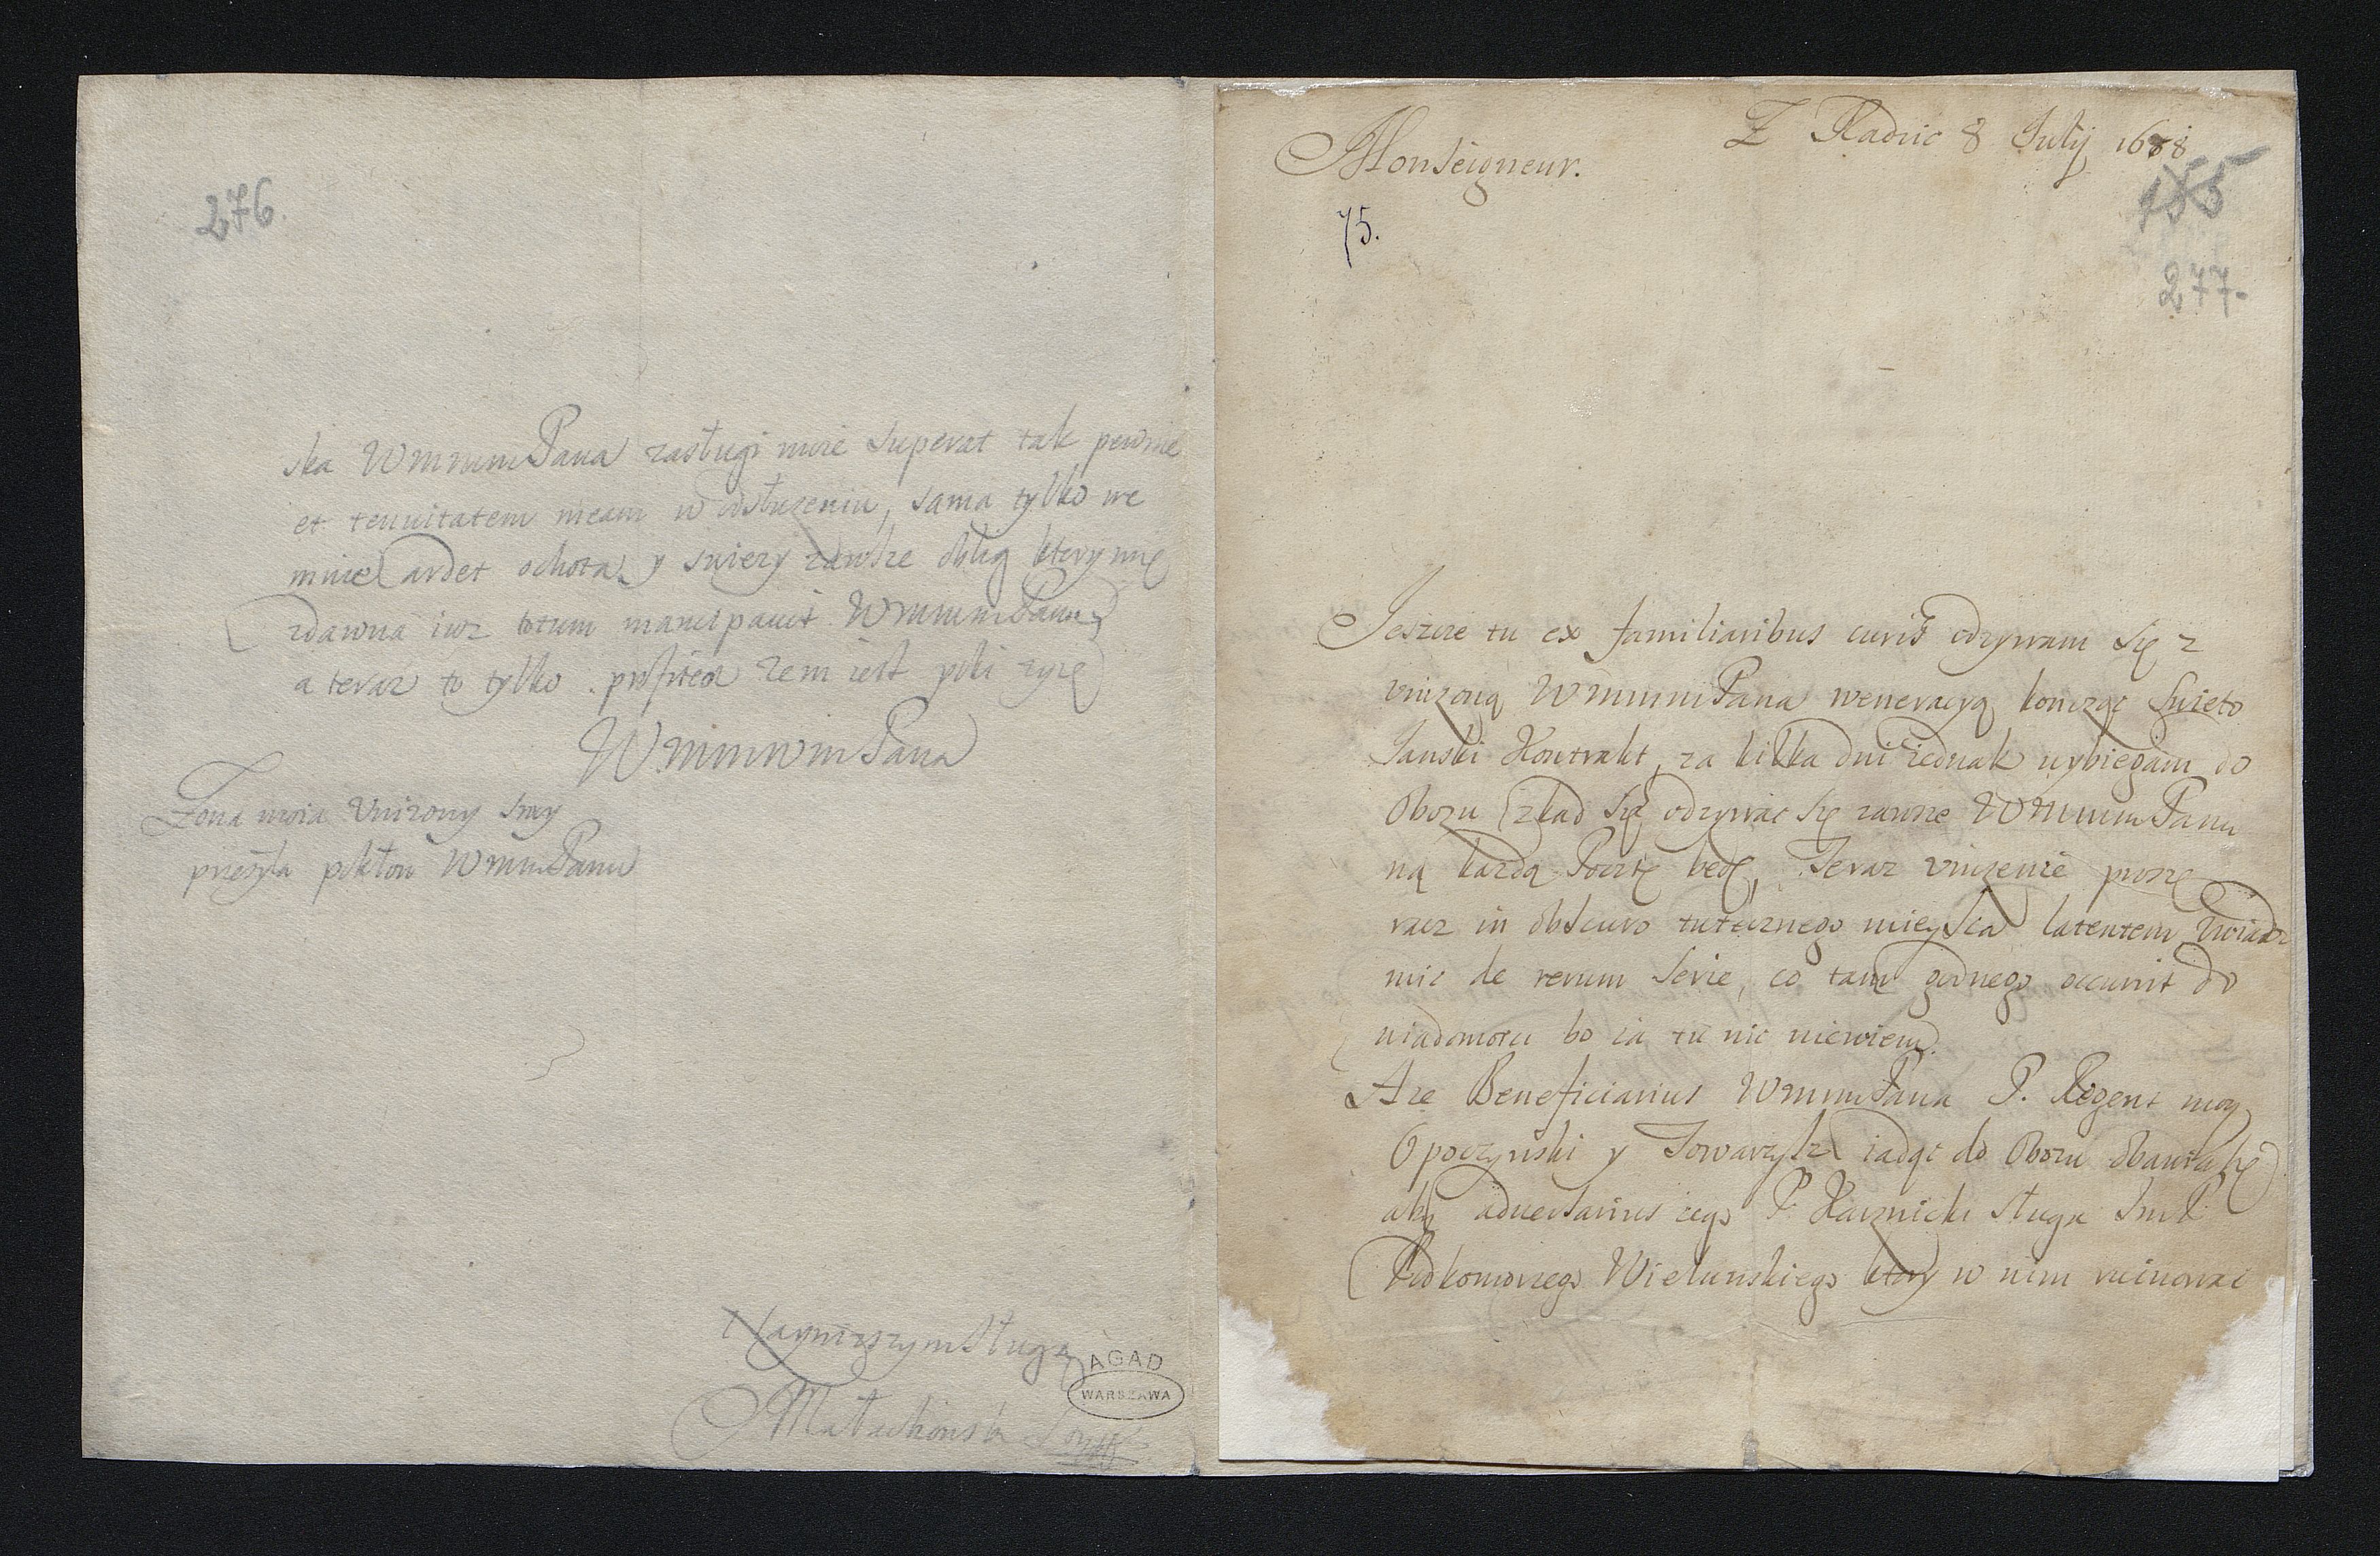 276.
ska WmmmPana zasługi moie superat tak pewnie
et tenuitatem meam w odsłuzeniu, sama tylko we
mnie ardet ochota y swiezy zawsze oblig ktory mię
zdawna iuz totum mancipauit WmmmPanu,
a teraz to tylko profiteor zem iest poki zyię
WmmwmPana
Zona moia Unizony swoy
przesyła pokłon WmmPanu
Nayniszszym Sługą
Małachowski
AGAD
WARSZAWA
Z Radzic 8 Julij 1688
Monseigneur.
155
75.
277.
Jeszcze tu ex familiaribus curis odzywam się z
vnizoną WmmmPana weneracyą koncząc Swięto
Janski Kontrakt, za kilka dni iednak wybiegam do
Obozu zkąd się odzywac się zawsze WmmmPanu
na kazdą Pocztę będę, Teraz vnizenie proszę
racz in obscuro tuteiznego mieysca latentem Uwiado
mic de rerum serie, co tam godnego occurrit do
wiadomosci bo ia tu nic niewiem.
Aze Beneficiarius WmmmPana P. Regent moy
Opoczynski y Towarzysz iadąc do Obozu obawia się
aby aduersarius iego P. Karznicki sługa JmP
Podkomorzego Wielunskiego ktory w nim